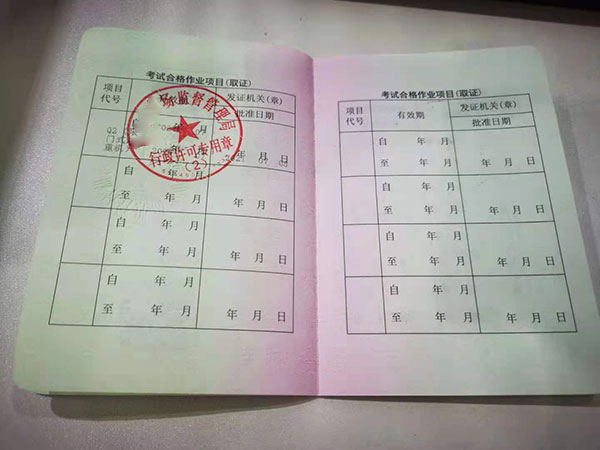 考试合格作业项目(取证)
项目
代号
发证机关(章)
批准日期
监督管理局
行政许可专用章
(2)
Q2
门式
重机
月
年 月
年 月 日
自 年 月
至 年 月
年 月 日
自 年 月
至 年 月
年 月 日
自 年 月
至 年 月
年 月 日
考试合格作业项目(取证)
项目
代号
有效期
发证机关(章)
批准日期
自 年 月
至 年 月
年 月 日
自 年 月
至 年 月
年 月 日
自 年 月
至 年 月
年 月 日
自 年 月
至 年 月
年 月 日